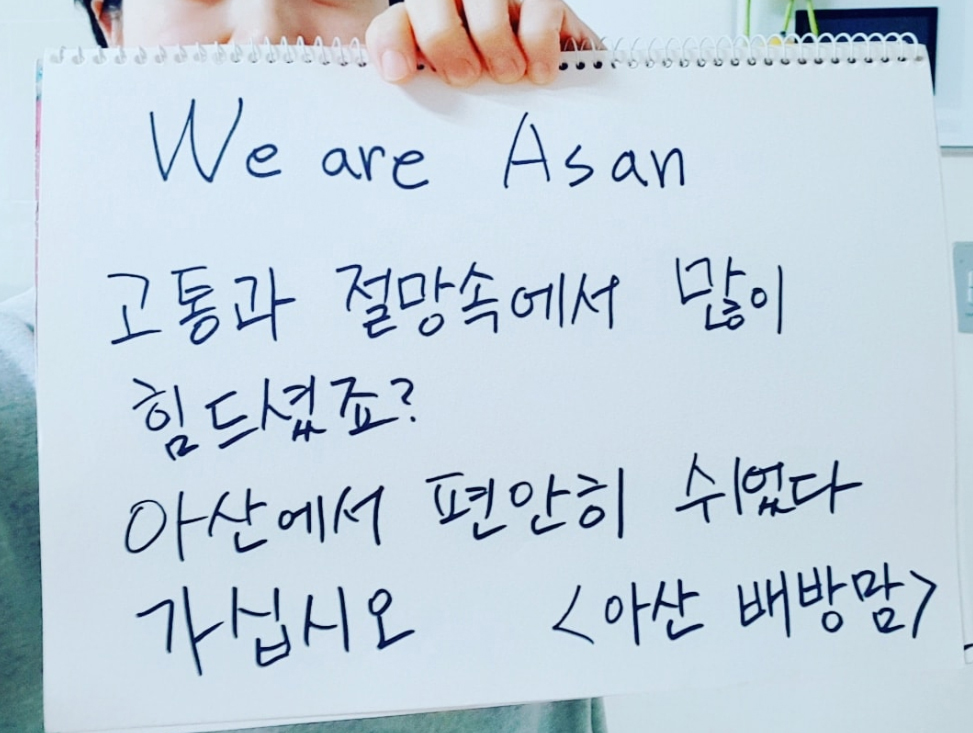 We are Asan
고통과 절망속에서 많이
힘드셨죠?
아산에서 편안히 쉬었다
가십시오 <아산 배방맘>